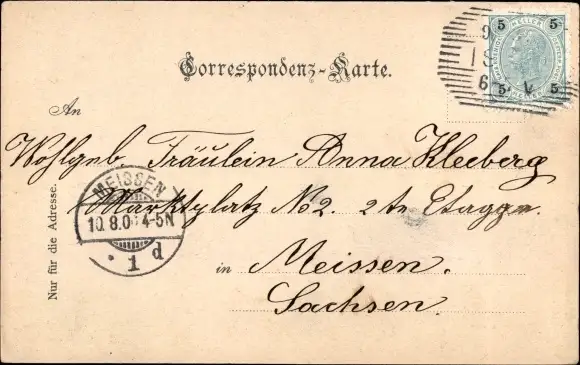 5 HELLER 5
5 5
Correspondenz-Karte.
An
Wohlgeb. Fräulein Anna Kleeberg
Marktplatz No 2. 2te Etage.
in Meissen.
Sachsen.
Nur für die Adresse.
MEISSEN
10.8.0 4-5N
* 1 d